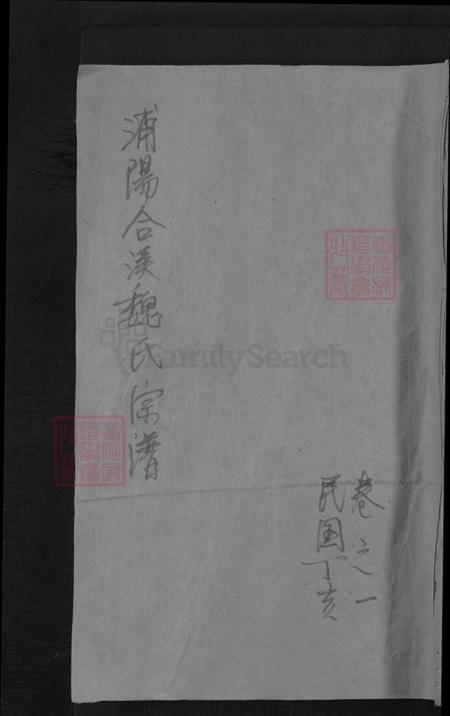 卷之一
民国丁亥
浦陽合溪魏氏宗譜
FamilySearch